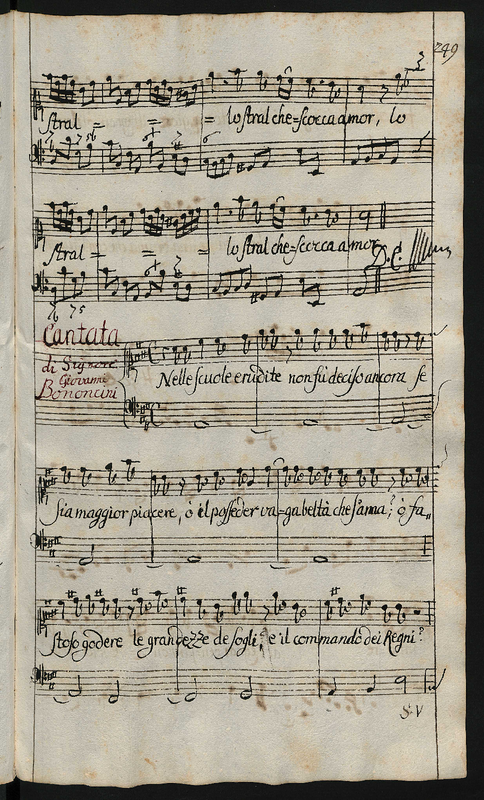 249
Stral = = = lo stral che=scocca amor, lo
7 5 6 6 7
Stral = = = lo stral che=scocca amor
D. C.
7 5
Cantata
di Signore
Giovanni
Bononcini
Nelle scuole erudite non fù deciso ancora se
sia maggior piacere, ò il posseder va=ga beltà che s'ama; ò fa„
stoso godere le grandezze de sogli; e il commando dei Regni?
S. V